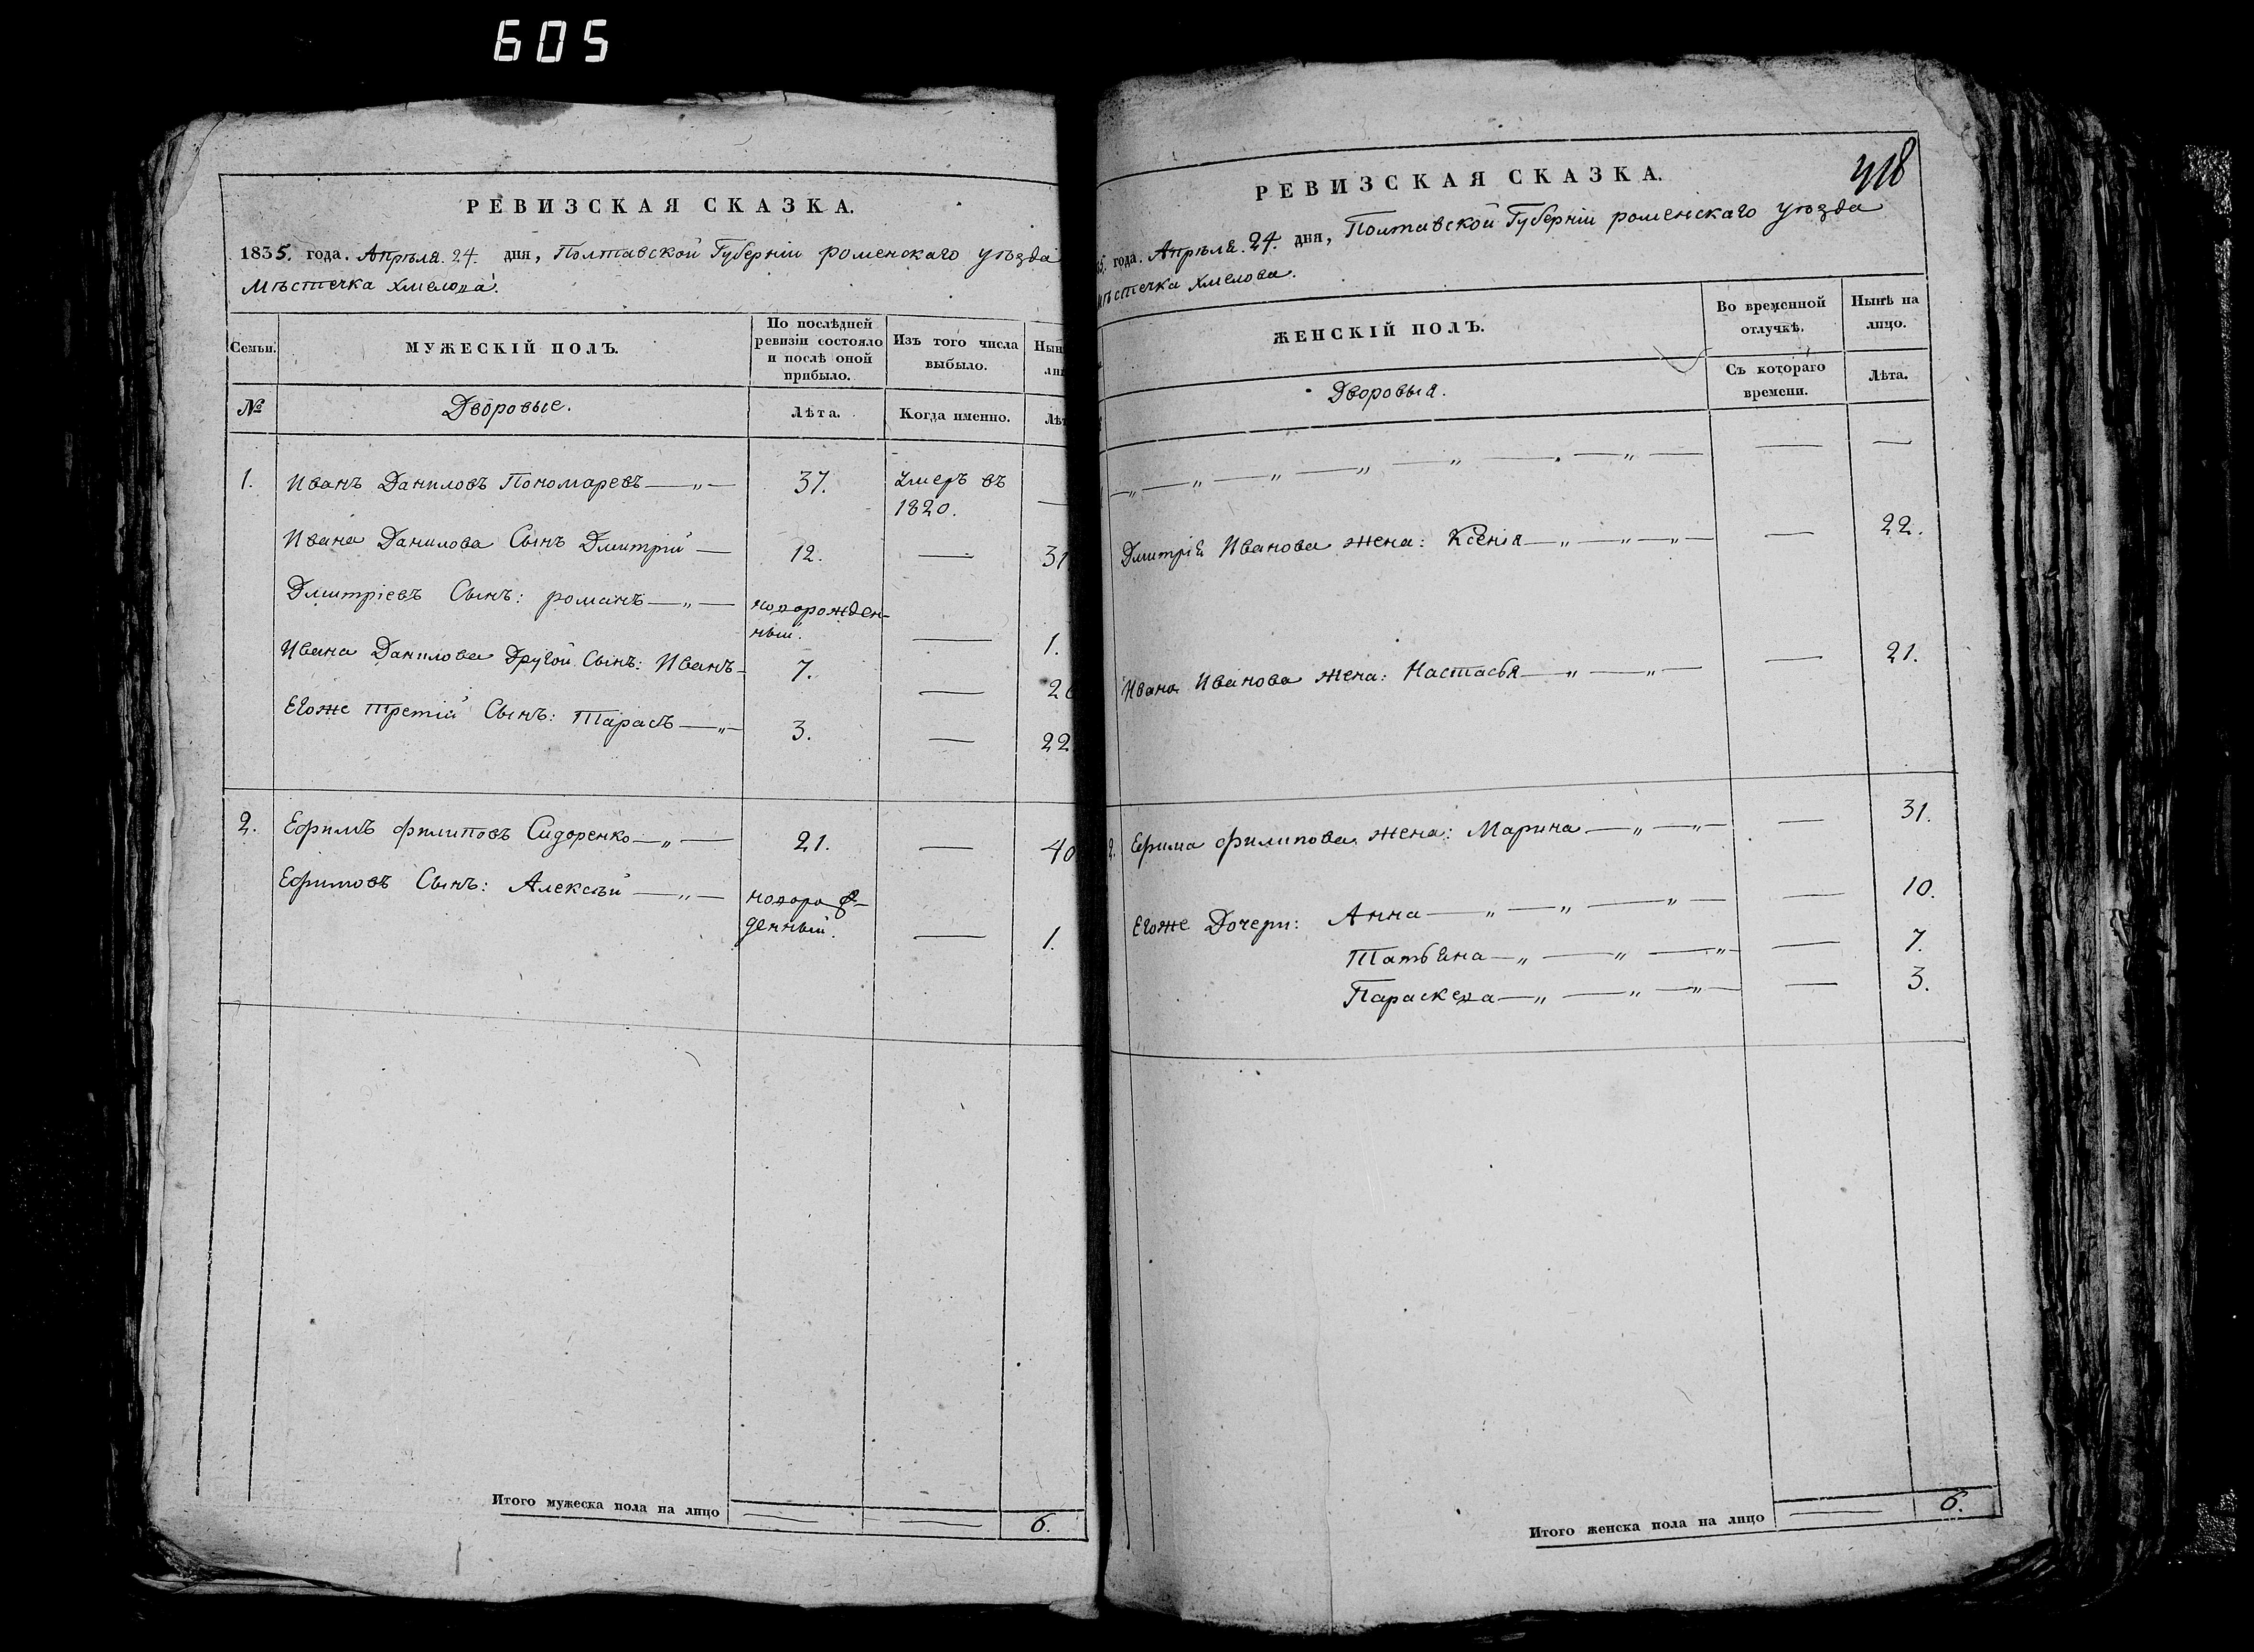 605
РЕВИЗСКАЯ СКАЗКА.
1835. года. Апрѣля. 24. дня, Полтавской Губерніи роменскаго уѣзда
Мѣстечка Хмелова.
Семьи.
МУЖЕСКІЙ ПОЛЪ.
По послѣдней
ревизіи состояло
и послѣ оной
прибыло.
Изъ того числа
выбыло.
№
Дворовые.
Лѣта.
Когда именно.
1. Иванъ Даниловъ Пономаревъ—„— 37. Умеръ въ
1820. —
Ивана Данилова Сынъ Дмитрій — 12. — 31
Дмитріевъ Сынъ: романъ—„— новорожден-
ный. — 1.
Ивана Данилова Другой Сынъ: Иванъ- 7. — 26
Егоже Третій Сынъ: Тарасъ—„— 3. — 22
2. Ефимъ Филиповъ Сидоренко—„— 21. — 40
Ефимовъ Сынъ: Алексѣй—„— новорож-
денный. — 1.
Итого мужеска пола на лицо — — 6.
418
РЕВИЗСКАЯ СКАЗКА.
35. года. Апрѣля. 24. дня, Полтавской Губерніи роменскаго уѣзда
Мѣстечка Хмелова.
ЖЕНСКІЙ ПОЛЪ.
Во временной
отлучкѣ.
Нынѣ на
лицо.
Дворовыя.
Съ котораго
времени.
Лѣта.
—„—„—„—„—.—„— — —
Дмитрія Иванова жена: Ксенія—„—„—„— — 22.
Ивана Иванова жена: Настасья—„—„— — 21.
2. Ефима Филипова жена: Марина—„—„— — 31.
Егоже Дочери: Анна—„—„—„— — 10.
Татьяна—„—„—„— — 7.
Параскева—„—„—„— — 3.
Итого женска пола на лицо — 6.